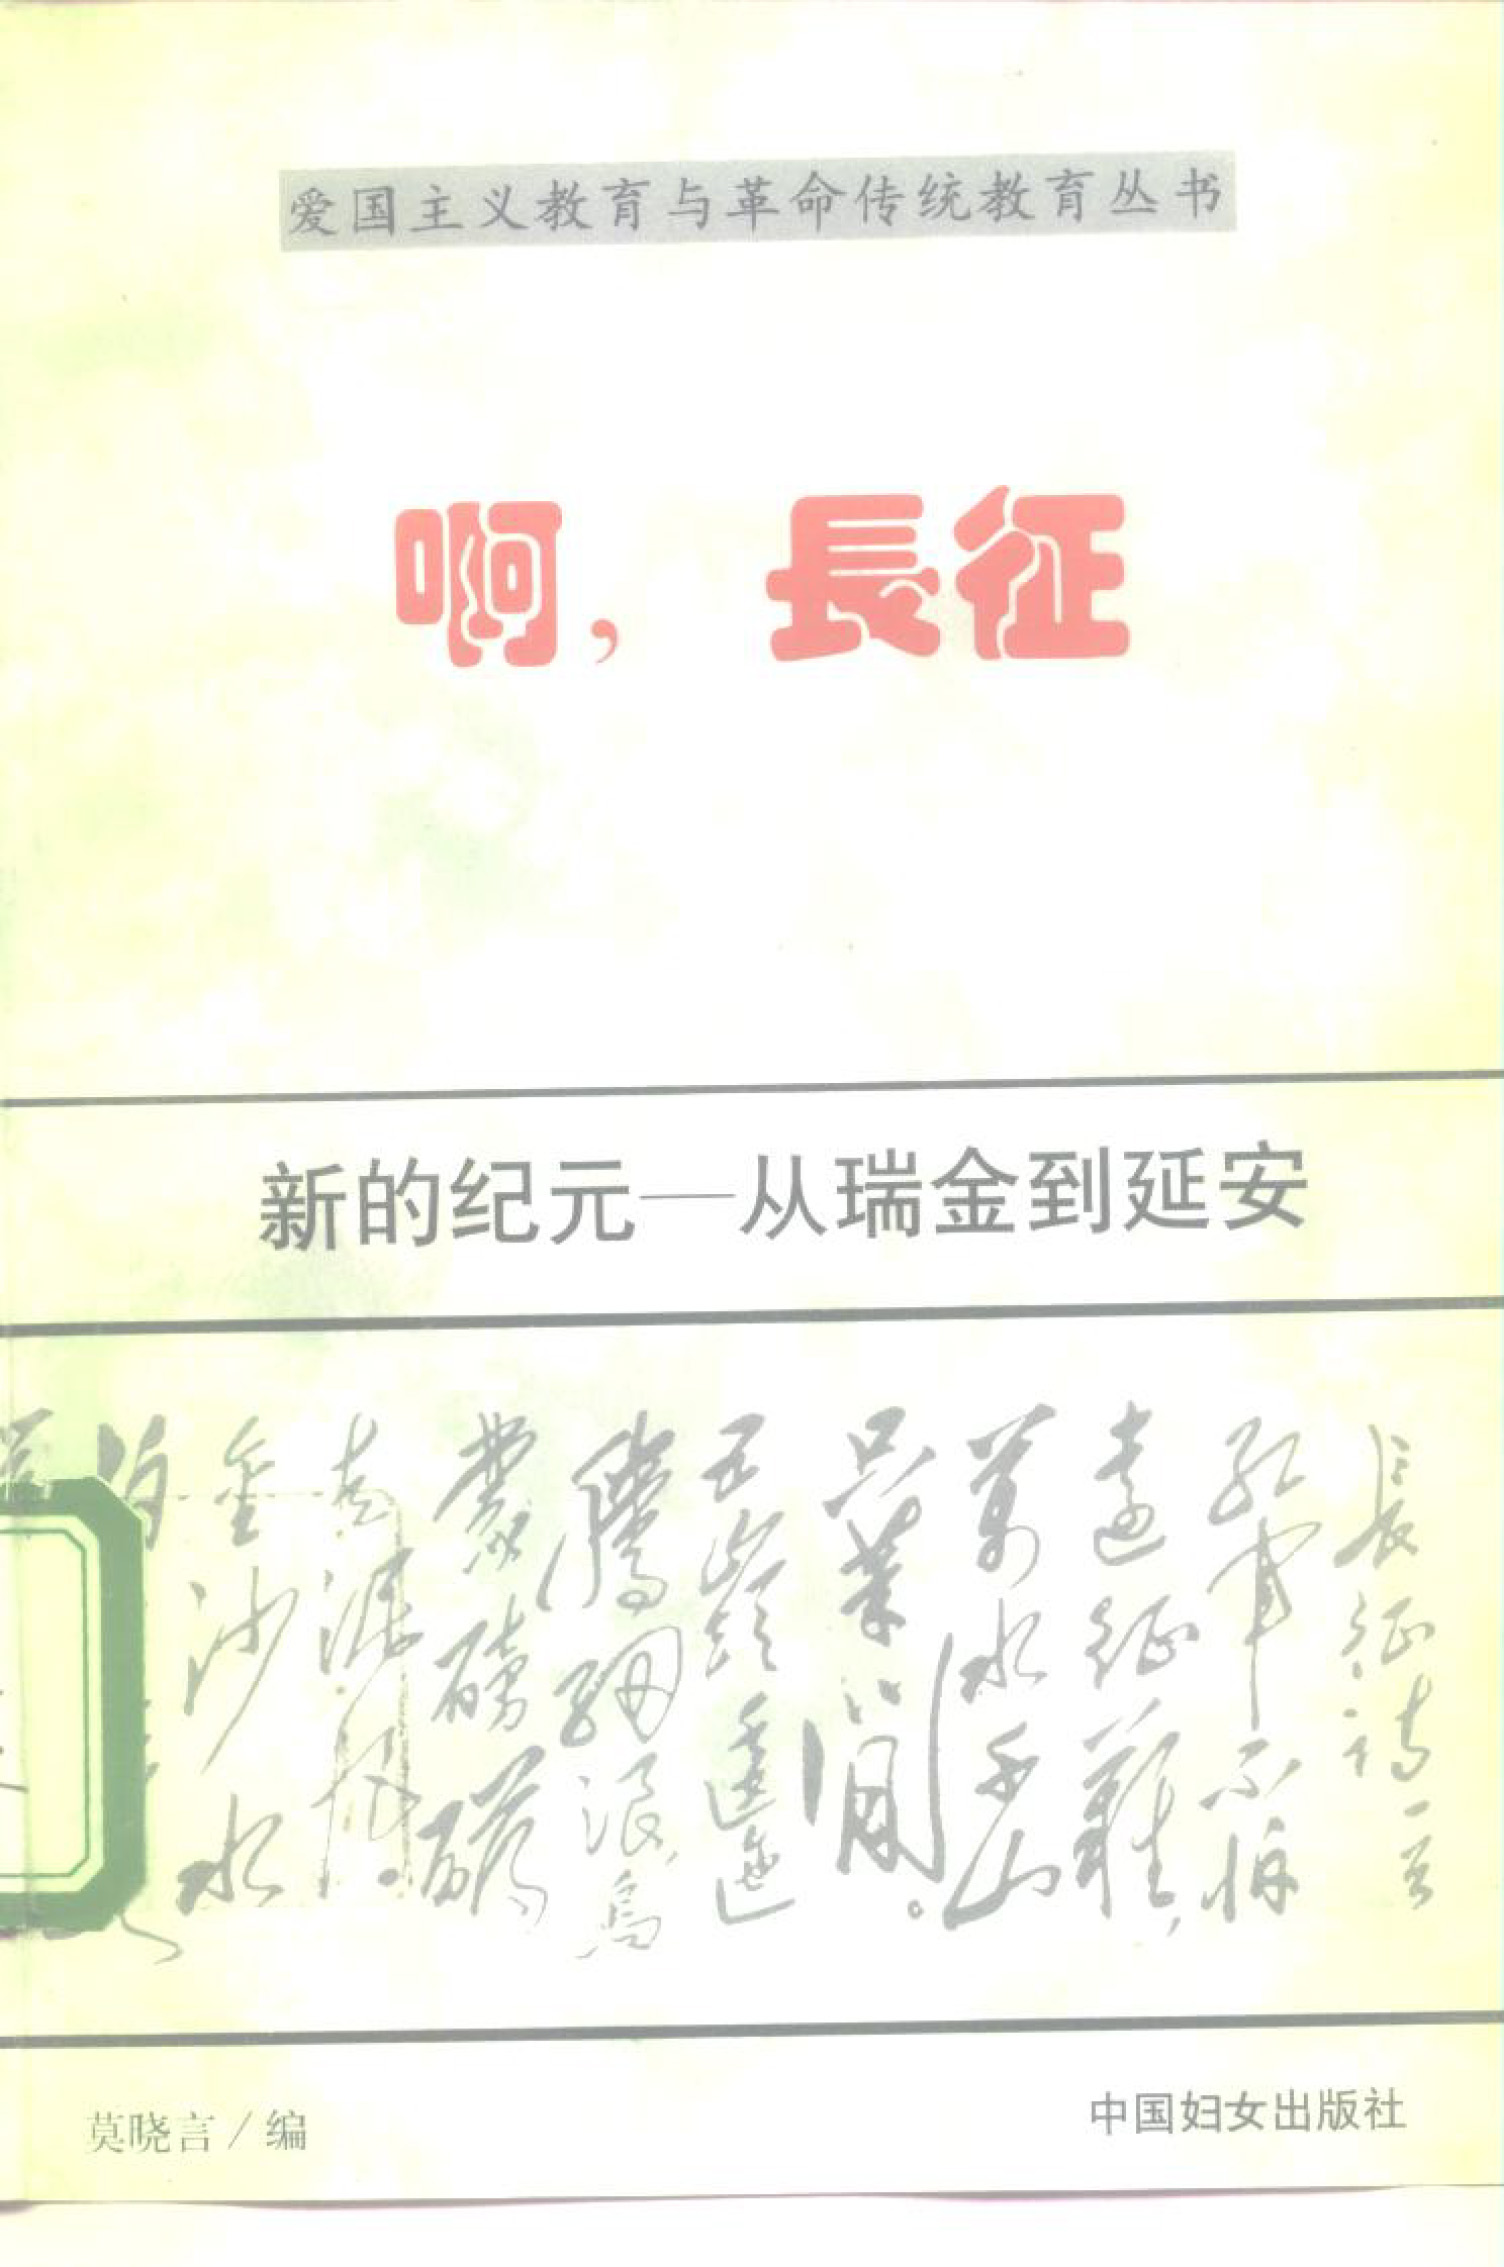 爱国主义教育与革命传统教育丛书
啊，長征
新的纪元—从瑞金到延安
長征诗一首
红军不怕
远征難，
萬水千山
只等闲。
五岭逶迤
腾细浪，乌
蒙磅礴
走泥丸。
金沙水
拍
莫晓言／编
中国妇女出版社